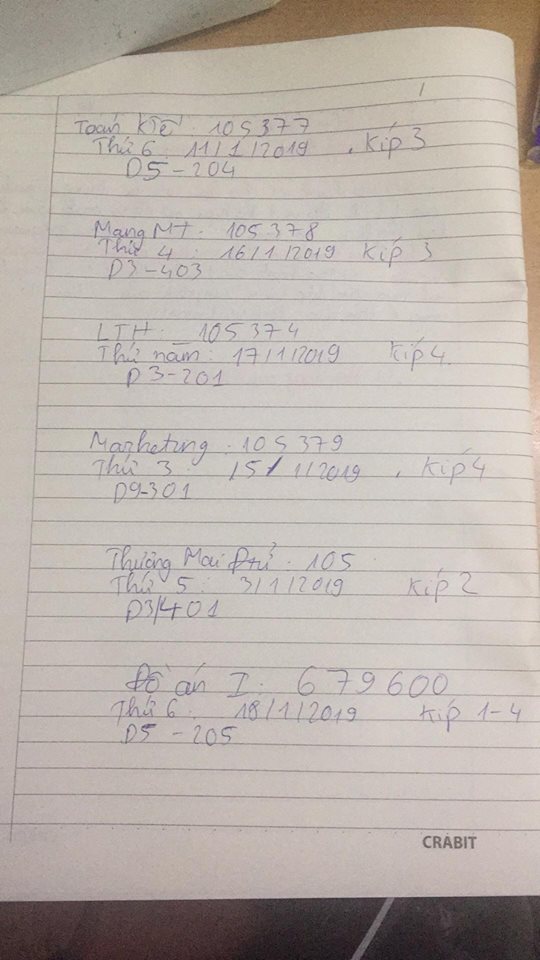 1
Toán KTế: 105377
Thứ 6 11/1/2019 . Kíp 3
D5-204
Mạng MT: 105378
Thứ 4: 16/1/2019 Kíp 3
D3-403
LTH: 105374
Thứ năm: 17/1/2019 Kíp 4
D3-201
Marketing: 105379
Thứ 3: 15/1/2019 . Kíp 4
D9-301
Thương Mại Đtử: 105
Thứ 5: 3/1/2019 Kíp 2
D3/401
Đồ án I: 679600
Thứ 6: 18/1/2019 Kíp 1-4
D5-205
CRABIT